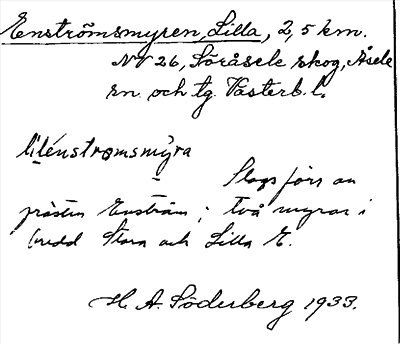 Enströmsmyren, Lilla, 2,5 km.
NV 26, Söråsele skog, Åsele
sn. och tg. Västerb. l.
lilénstromsmýra
Slogs förr av
prästen Enström; två myrar i
bredd Stora och Lilla E.
H. A. Söderberg 1933.